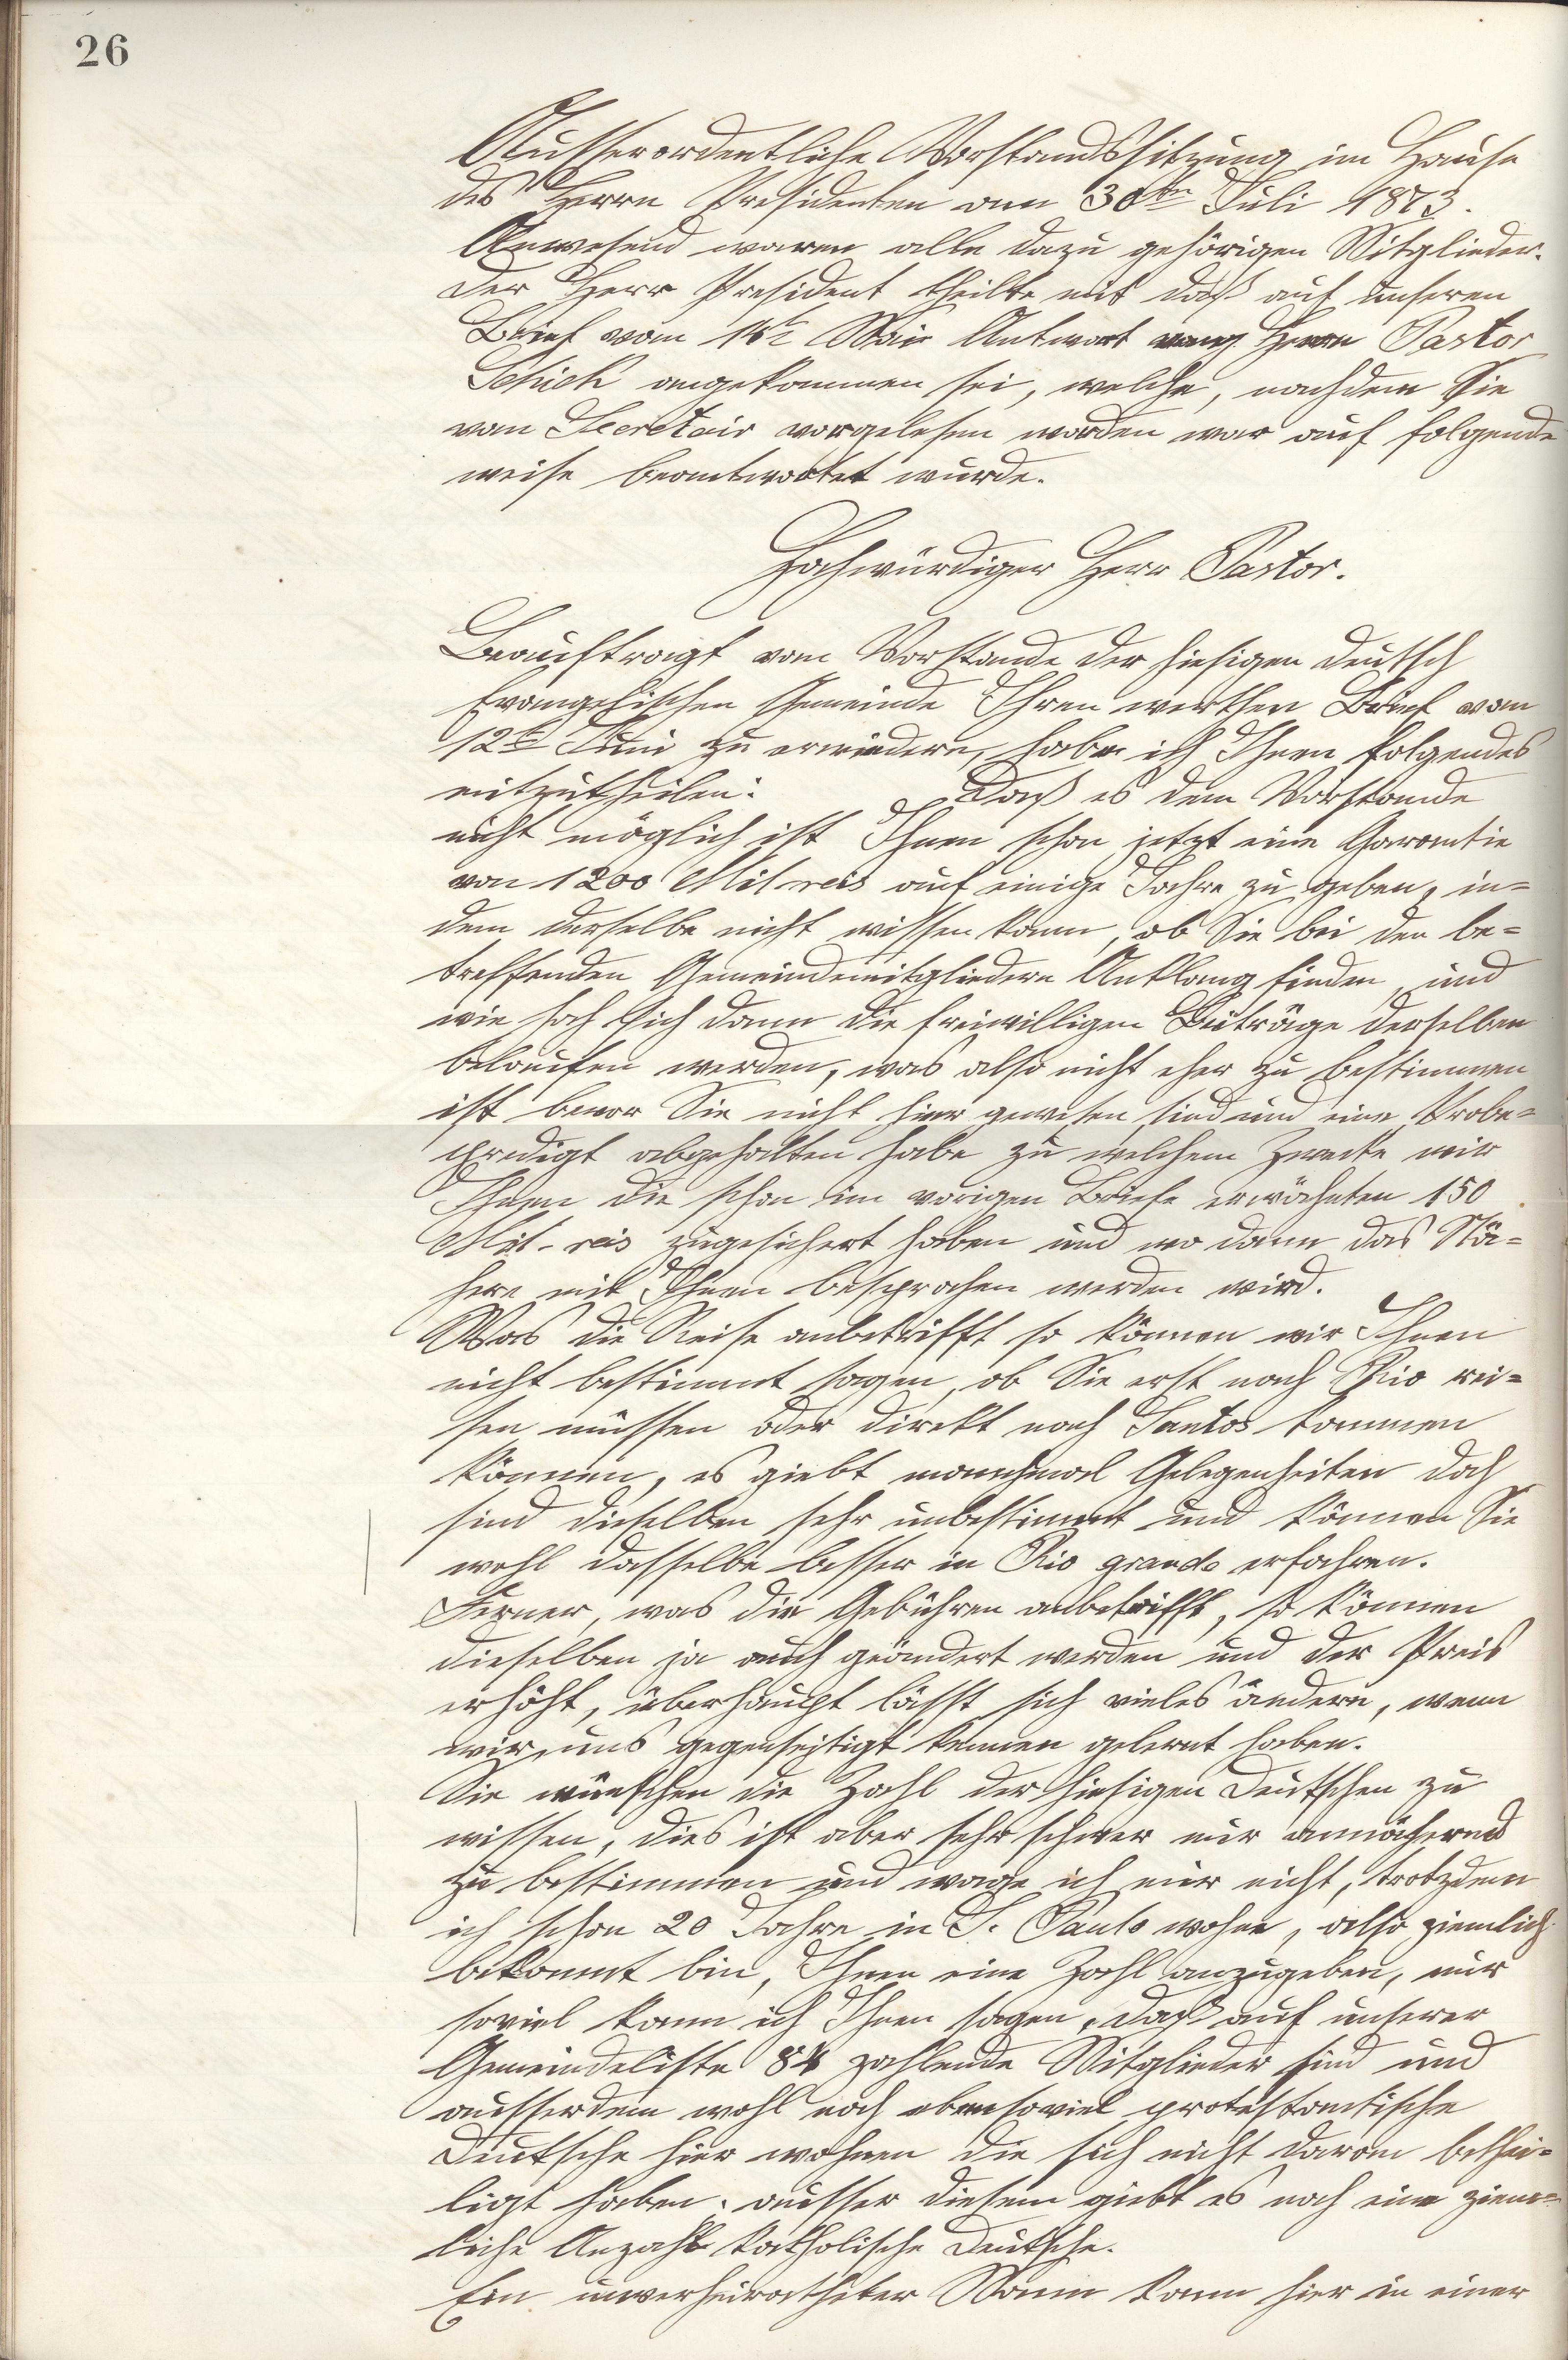 26
Ausserordentliche Vorstandssitzung im Hause
des Herrn Presidenten am 30ten Juli 1873.
Anwesend waren alle dazu gehörigen Mitglieder.
Der Herr President theilte mit daß auf unseren
Brief vom Mai Antwort Herrn Pastor
Schick angekommen sei, welche, nachdem Sie
vom Secretair vorgelesen worden war auf folgende
weise beantwortet wurde.
Hochwürdiger Herr Pastor.
Beauftragt vom Vorstande der hiesigen deutsch
Evangelischen Gemeinde Ihren werthen Brief vom
12ten Juni zu erwiedern, habe ich Ihnen folgendes
mitzutheilen: Daß es dem Vorstande
nicht möglich ist Ihnen schon jetzt eine Garantie
von 1200 Milreis auf einige Jahre zu geben, in=
dem derselbe nicht wissen kann, ob Sie bei den be=
treffenden Gemeindemitgliedern Anklang finden, und
wie hoch sich dann die freiwilligen Beiträge derselben
belaufen werden, was also nicht eher zu bestimmen
ist bevor Sie nicht hier gewesen sind und eine Probe=
predigt abgehalten habe zu welchem Zwecke wir
Ihnen die schon im vorigen Briefe erwähnten 150
Mil-reis zugesichert haben und wo dann das Nä=
here mit Ihnen besprochen werden wird.
Was die Reise anbetrifft so können wir Ihnen
nicht bestimmt sagen, ob Sie erst nach Rio rei=
sen müssen oder direkt nach Santos kommen
können, es giebt manchmal Gelegenheiten doch
sind dieselben sehr unbestimmt und können Sie
wohl dasselbe besser in Rio grande erfahren.
Ferner, was die Gebühren anbetrifft, so können
dieselben ja auch geändert werden und der Preis
erhöht, überhaupt lässt sich vieles ändern, wenn
wir uns gegenseitigt kennen gelernt haben.
Sie wünschen die Zahl der hiesigen Deutschen zu
wissen, dies ist aber sehr schwer nur annähernd
zu bestimmen und wage ich mir nicht, trotzdem
ich schon 20 Jahre in S. Paulo wohne, also ziemlich
bekannt bin, Ihnen eine Zahl anzugeben, nur
soviel kann ich Ihnen sagen, daß auf unserer
Gemeindeliste 84 zahlende Mitglieder sind und
ausserdem wohl noch ebensoviel protestantische
Deutsche hier wohnen die sich nicht daran bethei=
ligt haben. ausser diesem giebt es noch eine ziem=
liche Anzahl katholische Deutsche.
Ein unverheiratheter Mann kann hier in einer